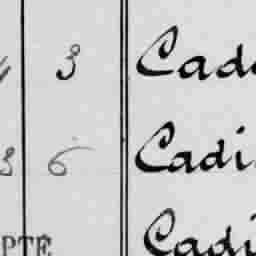 3 Cad
3 6 Cadi
PTE Cadi